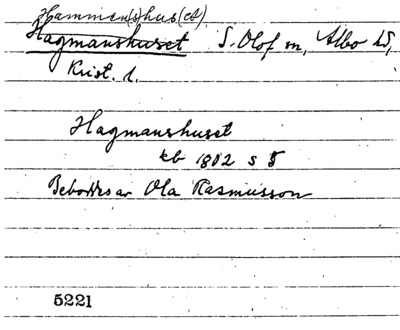 Hammen(s)hus(et)
Hagmanshuset S. Olof sn, Albo hd,
Krist. l.
Hagmanshuset
kb 1802 s 5
Beboddes av Ola Rasmusson
5221